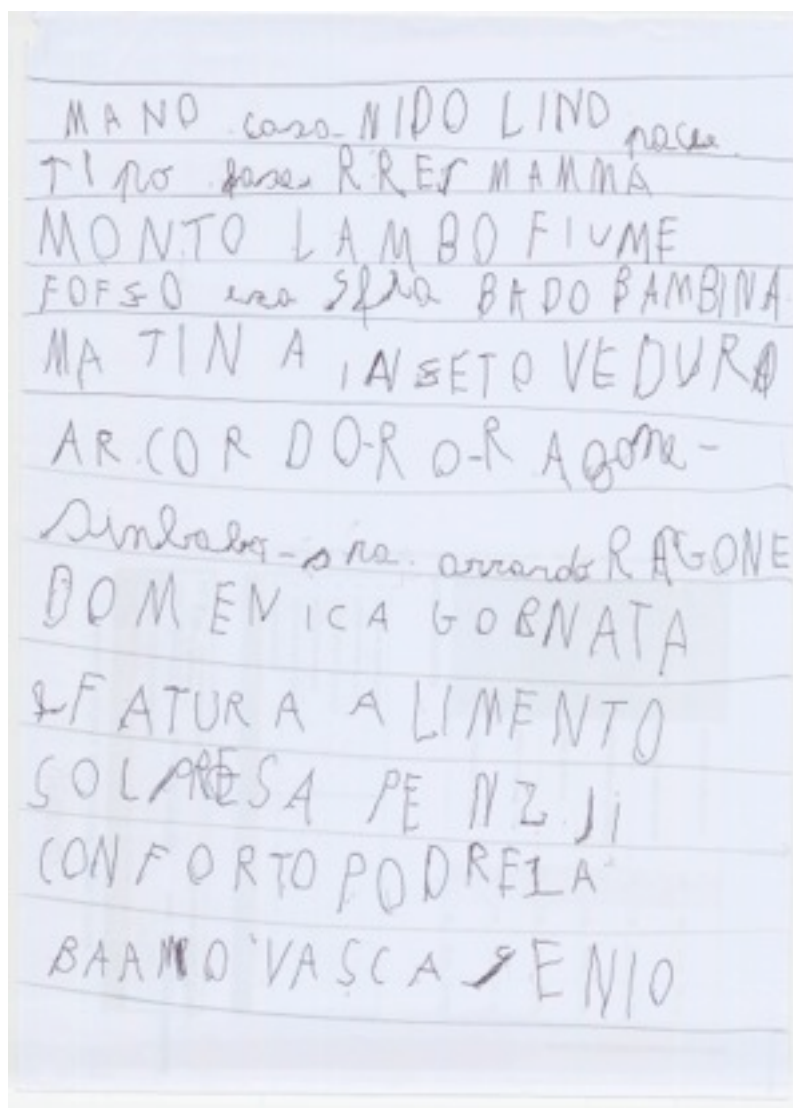 MANO casa NIDO LINO pace
TIpo fase RRET MAMMA
MONTO LAMBO FIUME
FOFSO era BADO BAMBINA
MATINA INSETO VEDURA
AR.CORDO-R O-R Agone-
arrando RAGONE
DOMENICA GORNATA
FATURA ALIMENTO
SOLPRESA PENZJi
CONFORTO PODRELA
BAAMO VASCA SENIO